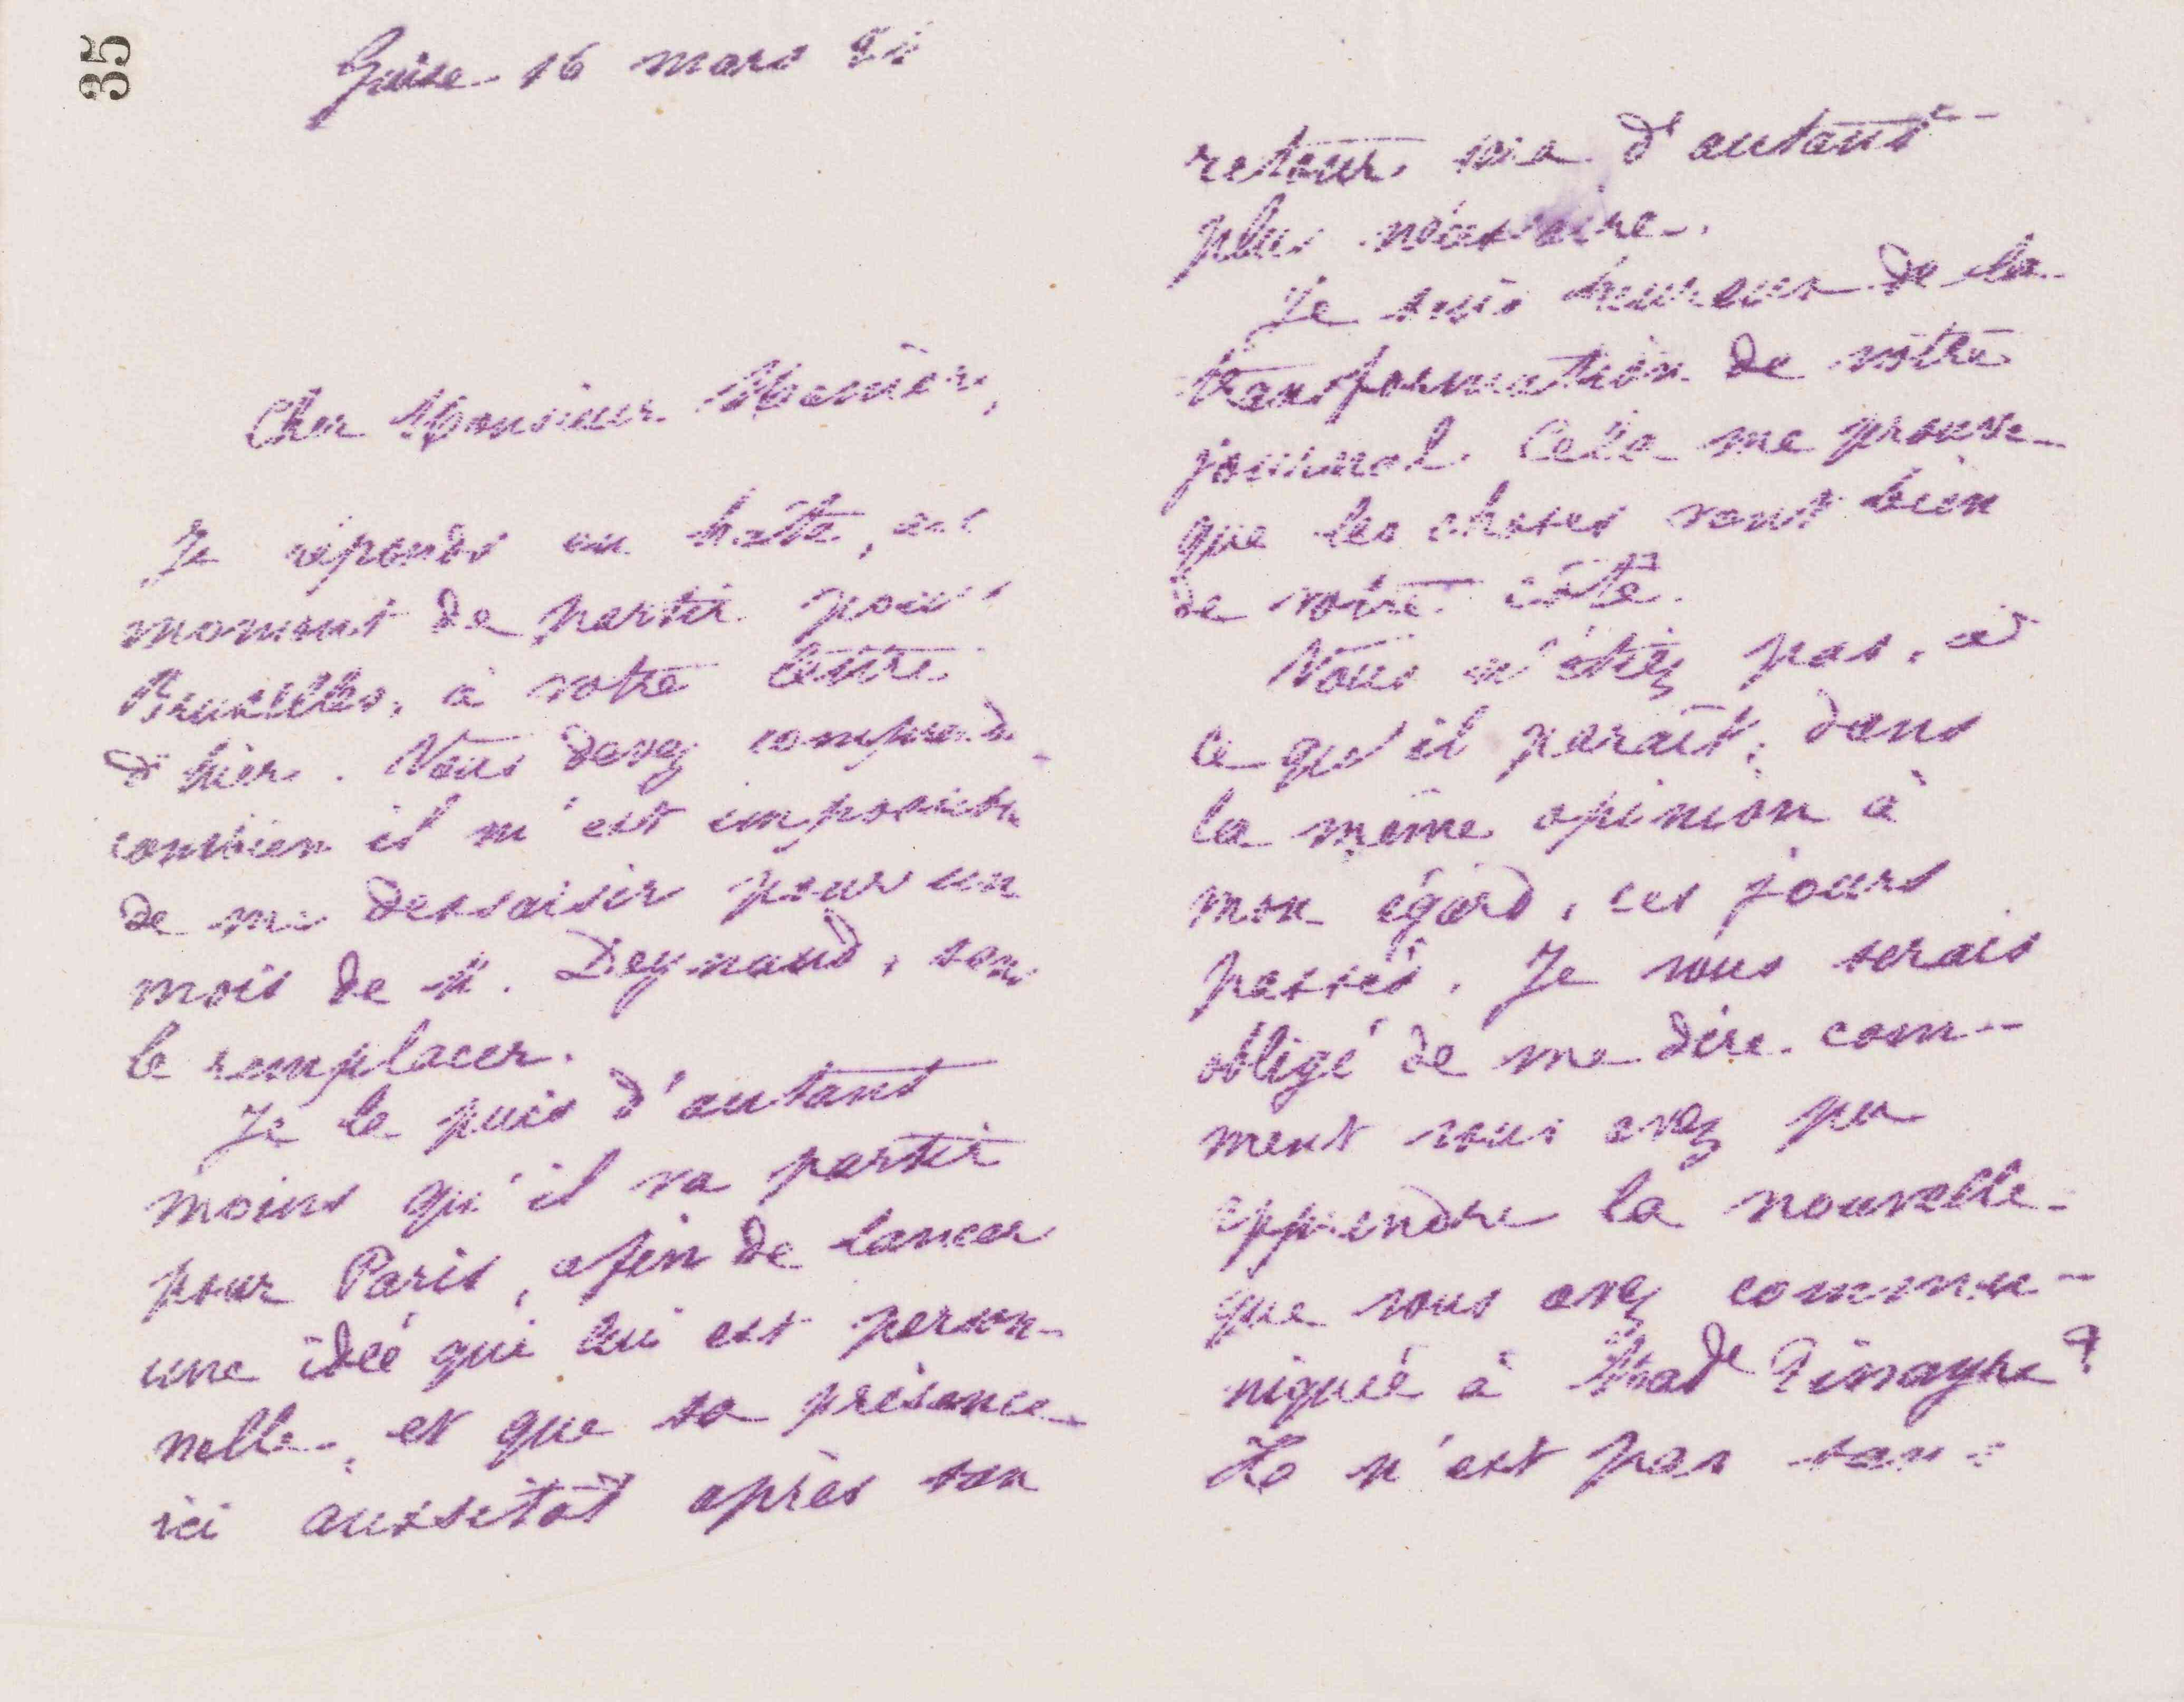 35
Guise 16 mars
Cher Monsieur
Je réponds en hâte, au
moment de partir pour
Bruxelles, à votre lettre
d'hier. Vous devez comprendre
combien il m'est impossible
de me dessaisir pour un
mois de M. Deynaud, sans
le remplacer.
Je le puis d'autant
moins qu'il va partir
pour Paris, afin de lancer
une idée qui lui est person-
nelle, et que sa présence
ici aussitôt après son
retour sera d'autant
plus nécessaire.
Je suis heureux de la
transformation de votre
journal. Cela me prouve
que les choses vont bien
de votre côté.
Vous n'étiez pas, à
ce qu'il paraît, dans
la même opinion à
mon égard, ces jours
passés. Je vous serais
obligé de me dire com-
ment vous avez pu
apprendre la nouvelle
que vous avez commu-
niquée à Made
Ce n'est pas sans